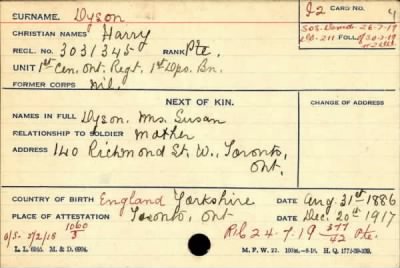 SURNAME. Dyson I2 CARD NO. 4
CHRISTIAN NAMES Harry
REGL. NO. 3031345 RANK Pte. FOLL.
UNIT 1st Cen. Ont. Regt. 1st Dpo. Bn.
FORMER CORPS nil.
NEXT OF KIN. CHANGE OF ADDRESS
NAMES IN FULL Dyson, Mrs. Susan
RELATIONSHIP TO SOLDIER Mother
ADDRESS 140 Richmond St. W., Toronto,
Ont.
COUNTRY OF BIRTH England Yorkshire DATE Aug. 31st 1886
PLACE OF ATTESTATION Toronto, Ont DATE Dec. 20th 1917
O/S. 5/2/18 1060/3 R/C 24-7-19 377/42 Pte.
L. L. M. & D. M. F. W. 22.